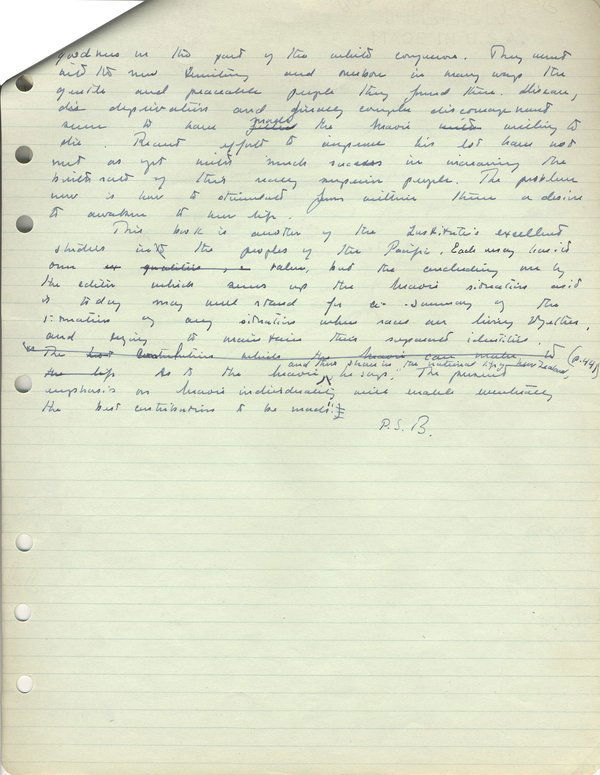 goodness on the part of the white conquerors. They went
into the new territory and overbore in many ways the
gentle and peaceable people they found there. Disease,
diet deprivation and grossly complete discouragement
seem to have made the Maoris willing to
die. Recent efforts to improve his lot have not
met as yet with much success in increasing the
birth rate of this really superior people. The problem
now is how to stimulate from within them a desire
to awaken to new life.
This book is another of the Institute's excellent
studies into the peoples of the Pacific. Each essay has its
own value, but the concluding one by
the editor which sums up the Maori situation as it
is today may well stand for a summary of the
situation of any situation where races are living together
and trying to maintain their separate identities.
"The contribution which the Maori can make to (p. 441)
and their share in the national life of New Zealand,
the life As to the Maori he says: "The present
emphasis on Maori individuality will enable eventually
the best contribution to be made."
P.S.B.